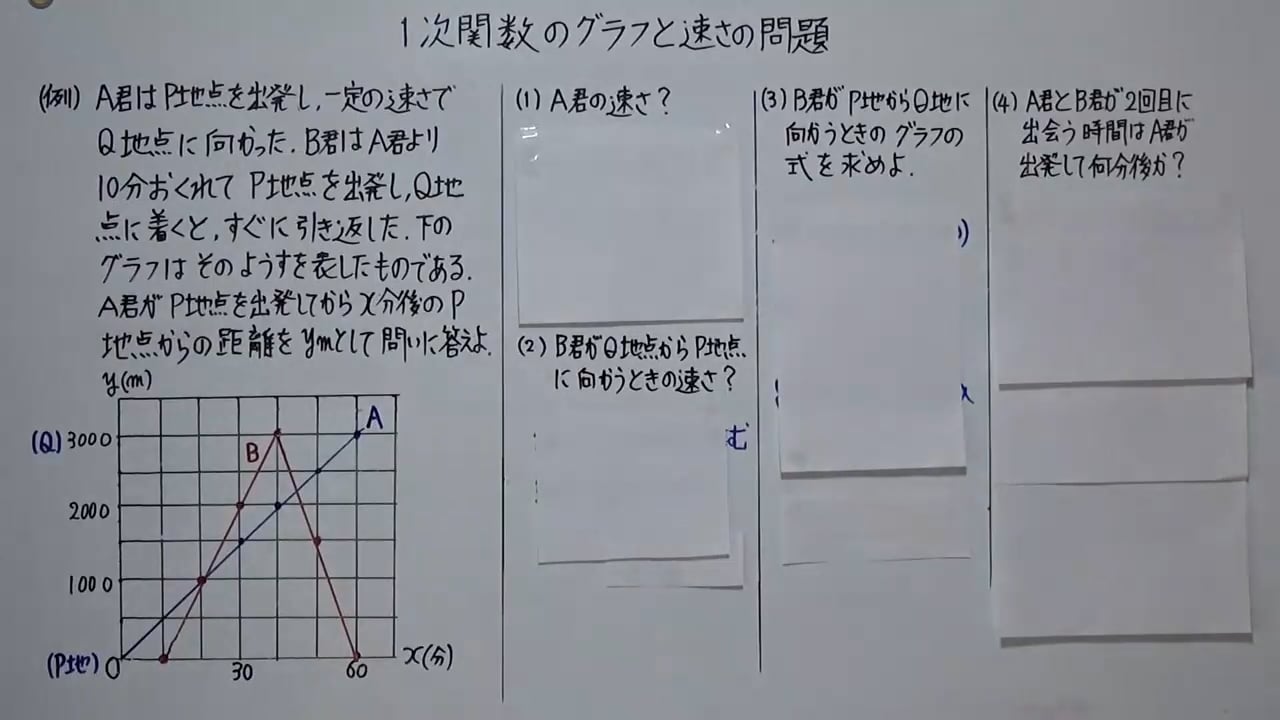 1次関数のグラフと速さの問題
(例) A君はP地点を出発し,一定の速さで
Q地点に向かった.B君はA君より
10分おくれてP地点を出発し,Q地
点に着くと,すぐに引き返した.下の
グラフはそのようすを表したものである.
A君がP地点を出発してからx分後のP
地点からの距離をymとして問いに答えよ.
y(m)
(Q) 3000
2000
1000
(P地) 0
30
60
x(分)
A
B
(1) A君の速さ?
(2) B君がQ地点からP地点
に向かうときの速さ?
む
(3) B君がP地からQ地に
向かうときのグラフの
式を求めよ.
)
x
(4) A君とB君が2回目に
出会う時間はA君が
出発して何分後か?